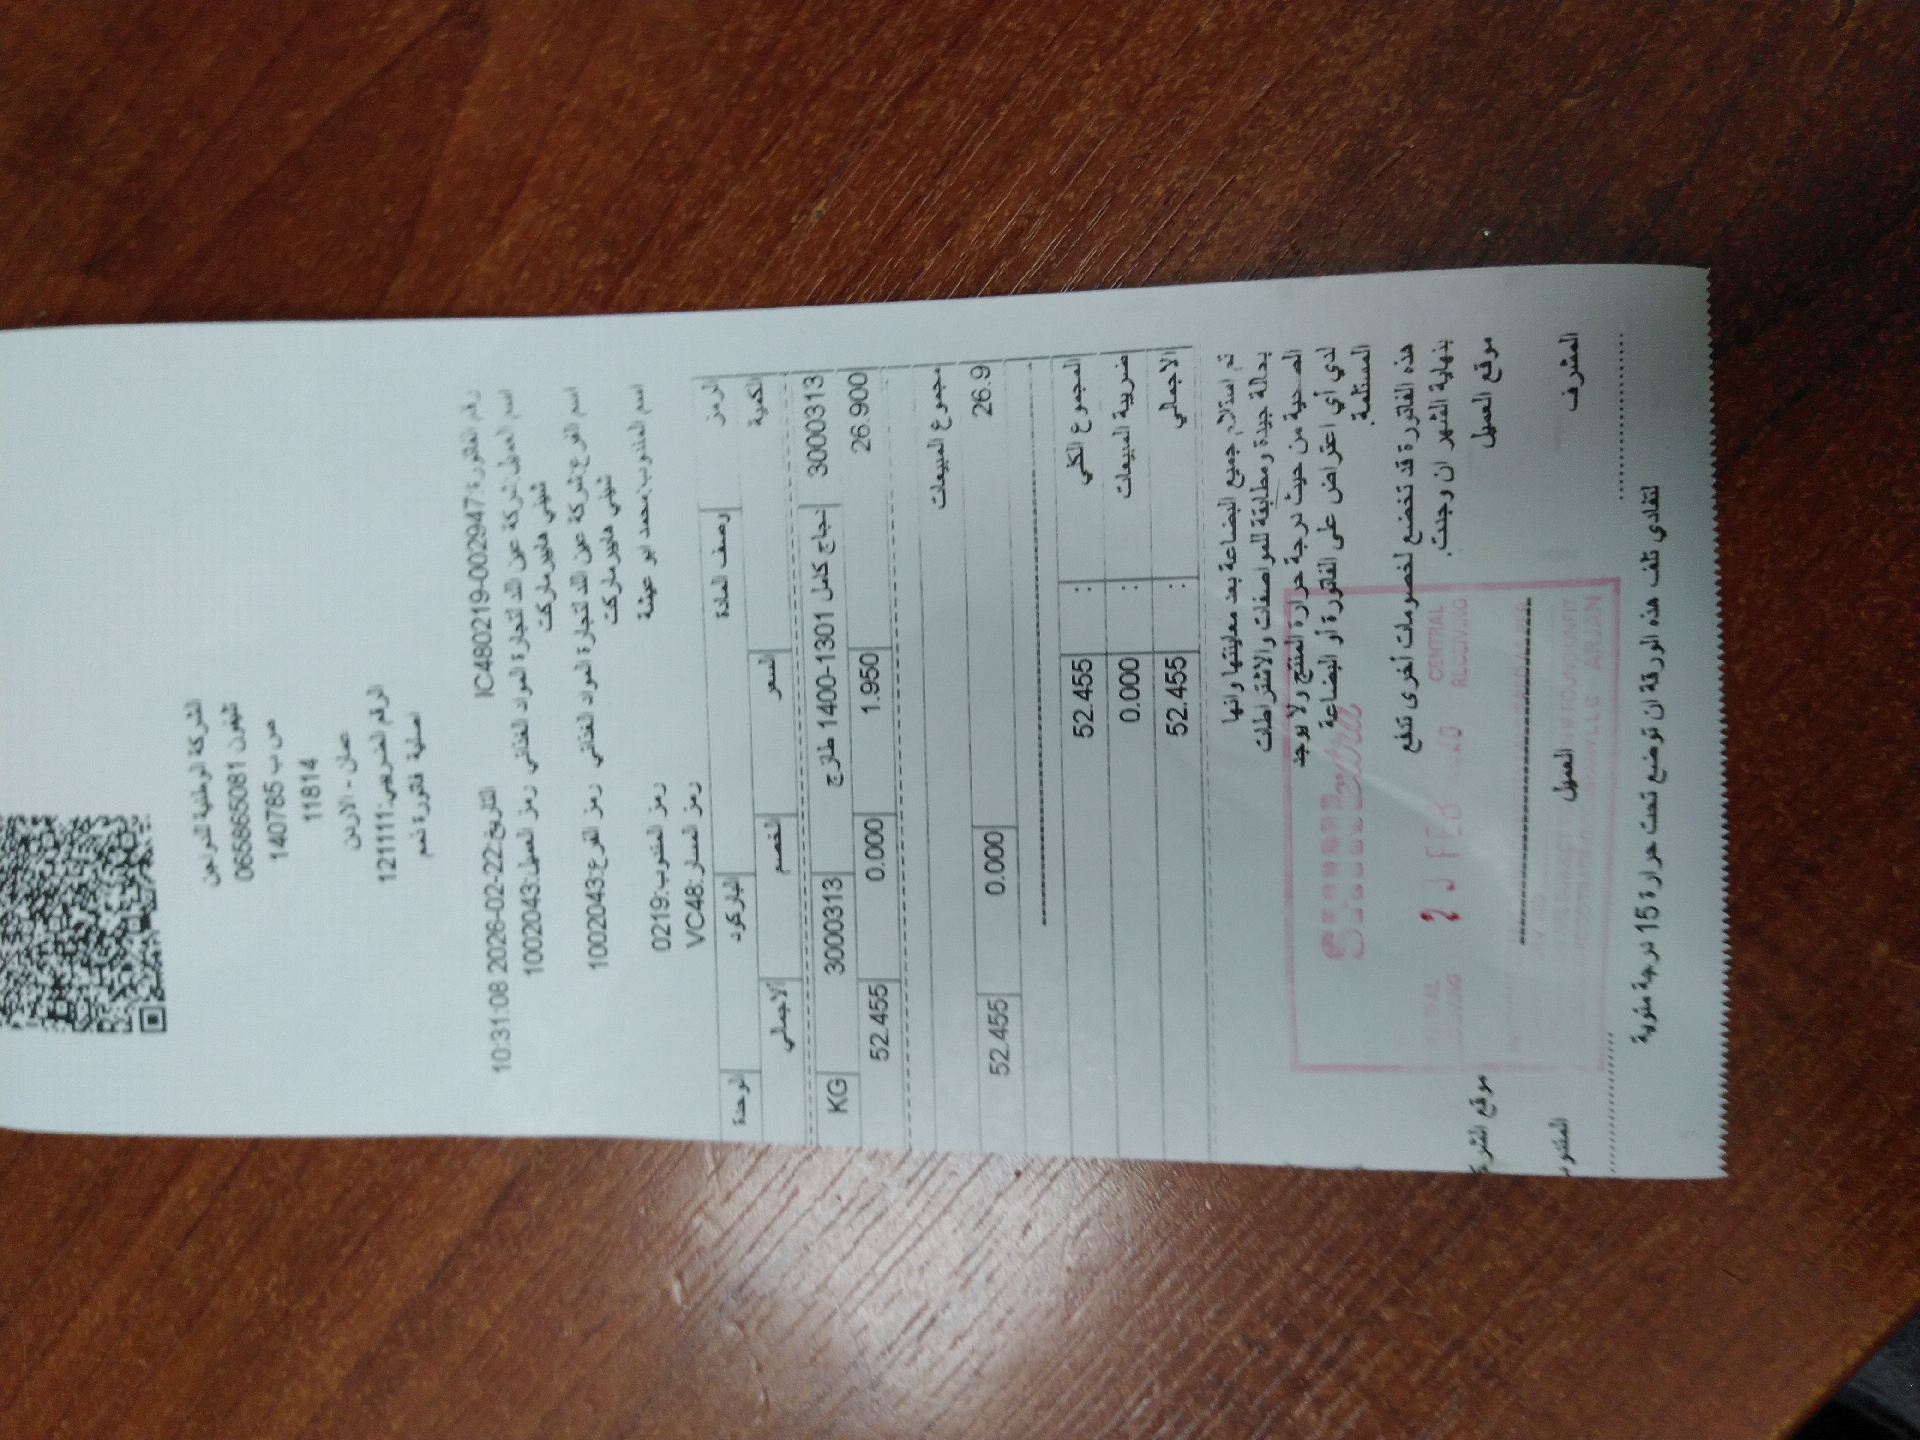 الشركة الوطنية للدواجن
تليفون 065865081
ص ب 140785
11814
عمان - الاردن
الرقم الضريبي:1211111
اصلية فاتورة ذمم
رقم الفاتورة:IC480219-0029447 التاريخ:22-02-2026 10:31:08
اسم العميل:شركة عين الغد لتجارة المواد الغذائي رمز العميل:1002043
هايبر ماركت
اسم الفرع:شركة عين الغد لتجارة المواد الغذائي رمز الفرع:1002043
هايبر ماركت
اسم المندوب:محمد ابو عيشة رمز المندوب:0219
رمز المسار:VC48
الرمز وصف المادة الباركود الوحدة
الكمية السعر الخصم الاجمالي
30000313 دجاج كامل 1301-1400 طازج 30000313 KG
26.900 1.950 0.000 52.455
مجموع المبيعات
26.9 0.000 52.455
المجموع الكلي : 52.455
ضريبة المبيعات : 0.000
الاجمالي : 52.455
تم استلام جميع البضاعة بعد معاينتها وانها
بحالة جيدة ومطابقة للمواصفات والاشتراطات
الصحية من حيث درجة حرارة المنتج ولا يوجد
لدي أي اعتراض على الفاتورة أو البضاعة
المستلمة.
هذه الفاتورة قد تخضع لخصومات أخرى تدفع
بنهاية الشهر ان وجدت.
موقع العميل موقع الشر
CENTRAL
RECEIVING
FEB
المشرف العميل المندو
لتفادي تلف هذه الورقة ان توضع تحت حرارة 15 درجة مئوية